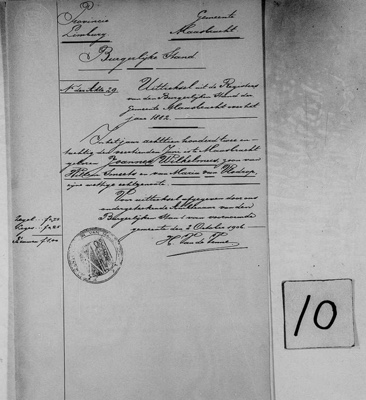 Provincie
Limburg
Gemeente
Maasbracht
Burgerlijke Stand
No der Akte 29.
Uittreksel uit de Registers
van den Burgerlijken Stand der
gemeente Maasbracht voor het
jaar 1882.
In het jaar achttien honderd twee en
tachtig den Juni is te Maasbracht
geboren Joannes Wilhelmus zoon van
Willem Smeets en van Maria van
zijne wettige echtgenoote
Voor uittreksel afgegeven door ons
ondergeteekende Ambtenaar van den
Burgerlijken Stand van voornoemde
gemeente den 2 October 1906
Zegel
H. van de
10